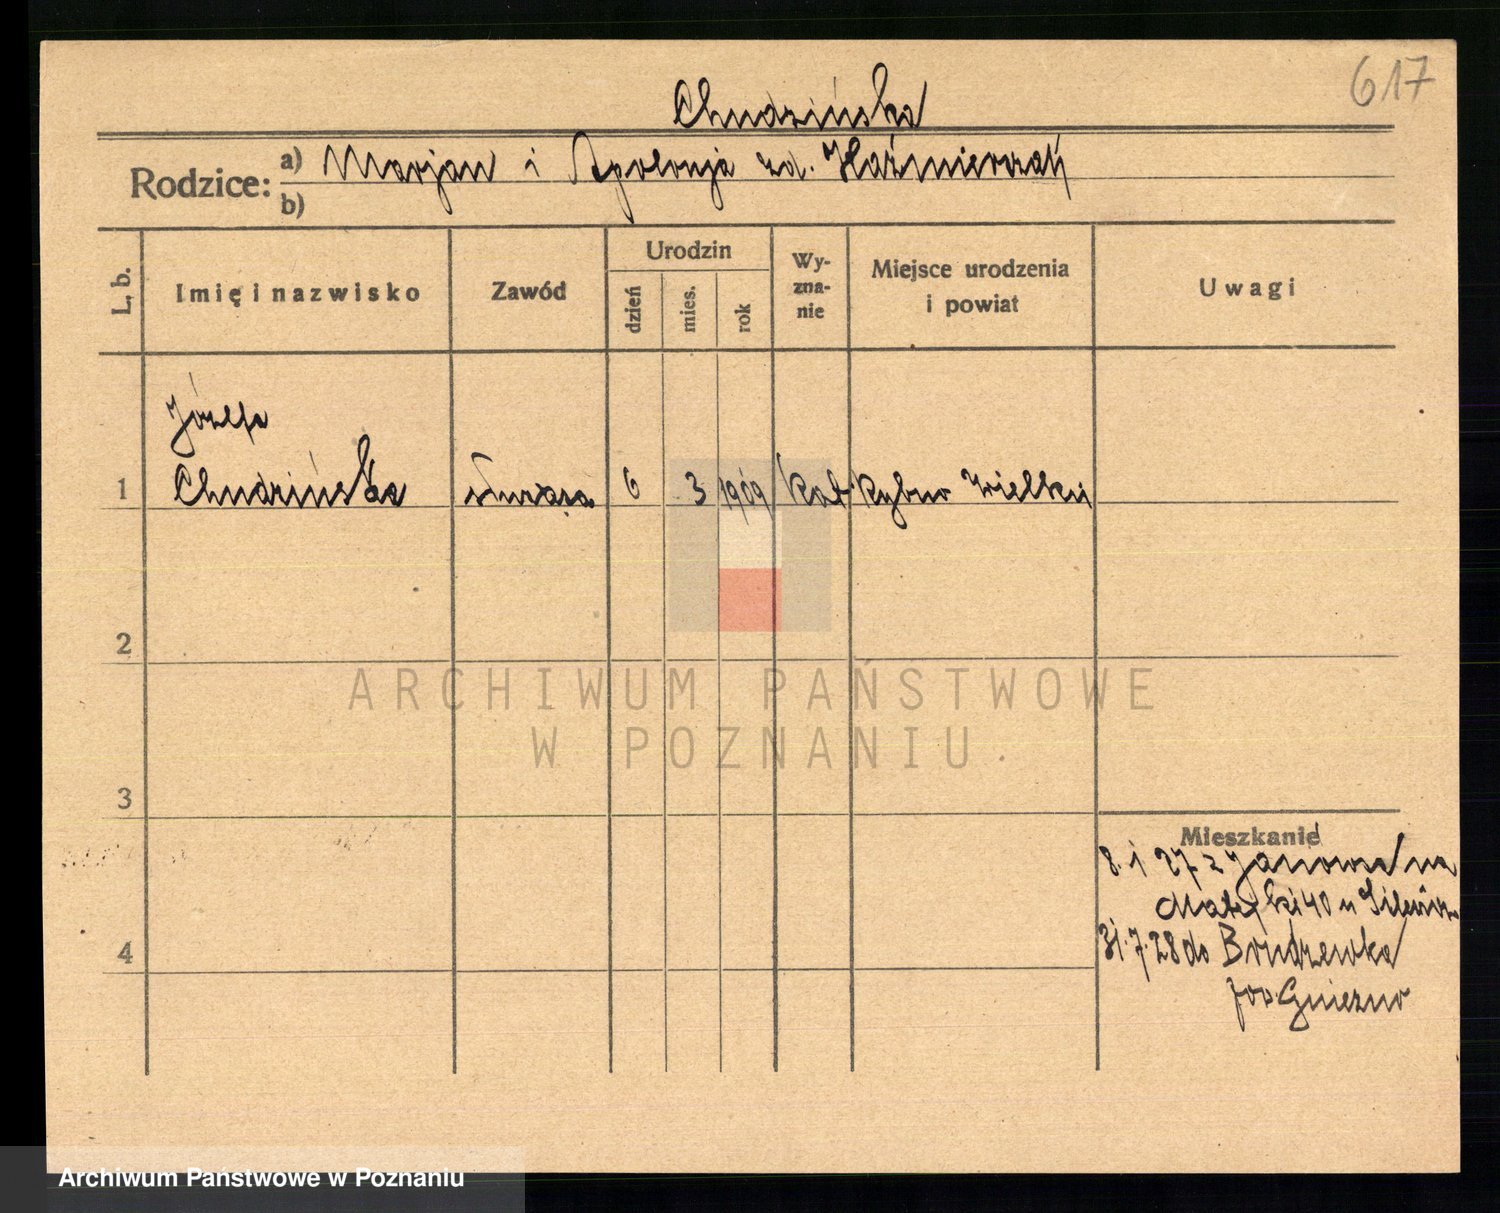 617
Chudzińska
Rodzice: a) Marjan i Apolonja zd. Kaźmierczak
b)
L. b.
Imię i nazwisko
Zawód
Urodzin
dzień
mies.
rok
Wy-
zna-
nie
Miejsce urodzenia
i powiat
Uwagi
Józefa
1 Chudzińska służąca 6 3 1909 kat Rybno Wielkie
2
ARCHIWUM PAŃSTWOWE
W POZNANIU
3
Mieszkanie
8. 1 27 z Janowca na
31.7.28 do Brudzewka
4
pow. Gniezno
Archiwum Państwowe w Poznaniu